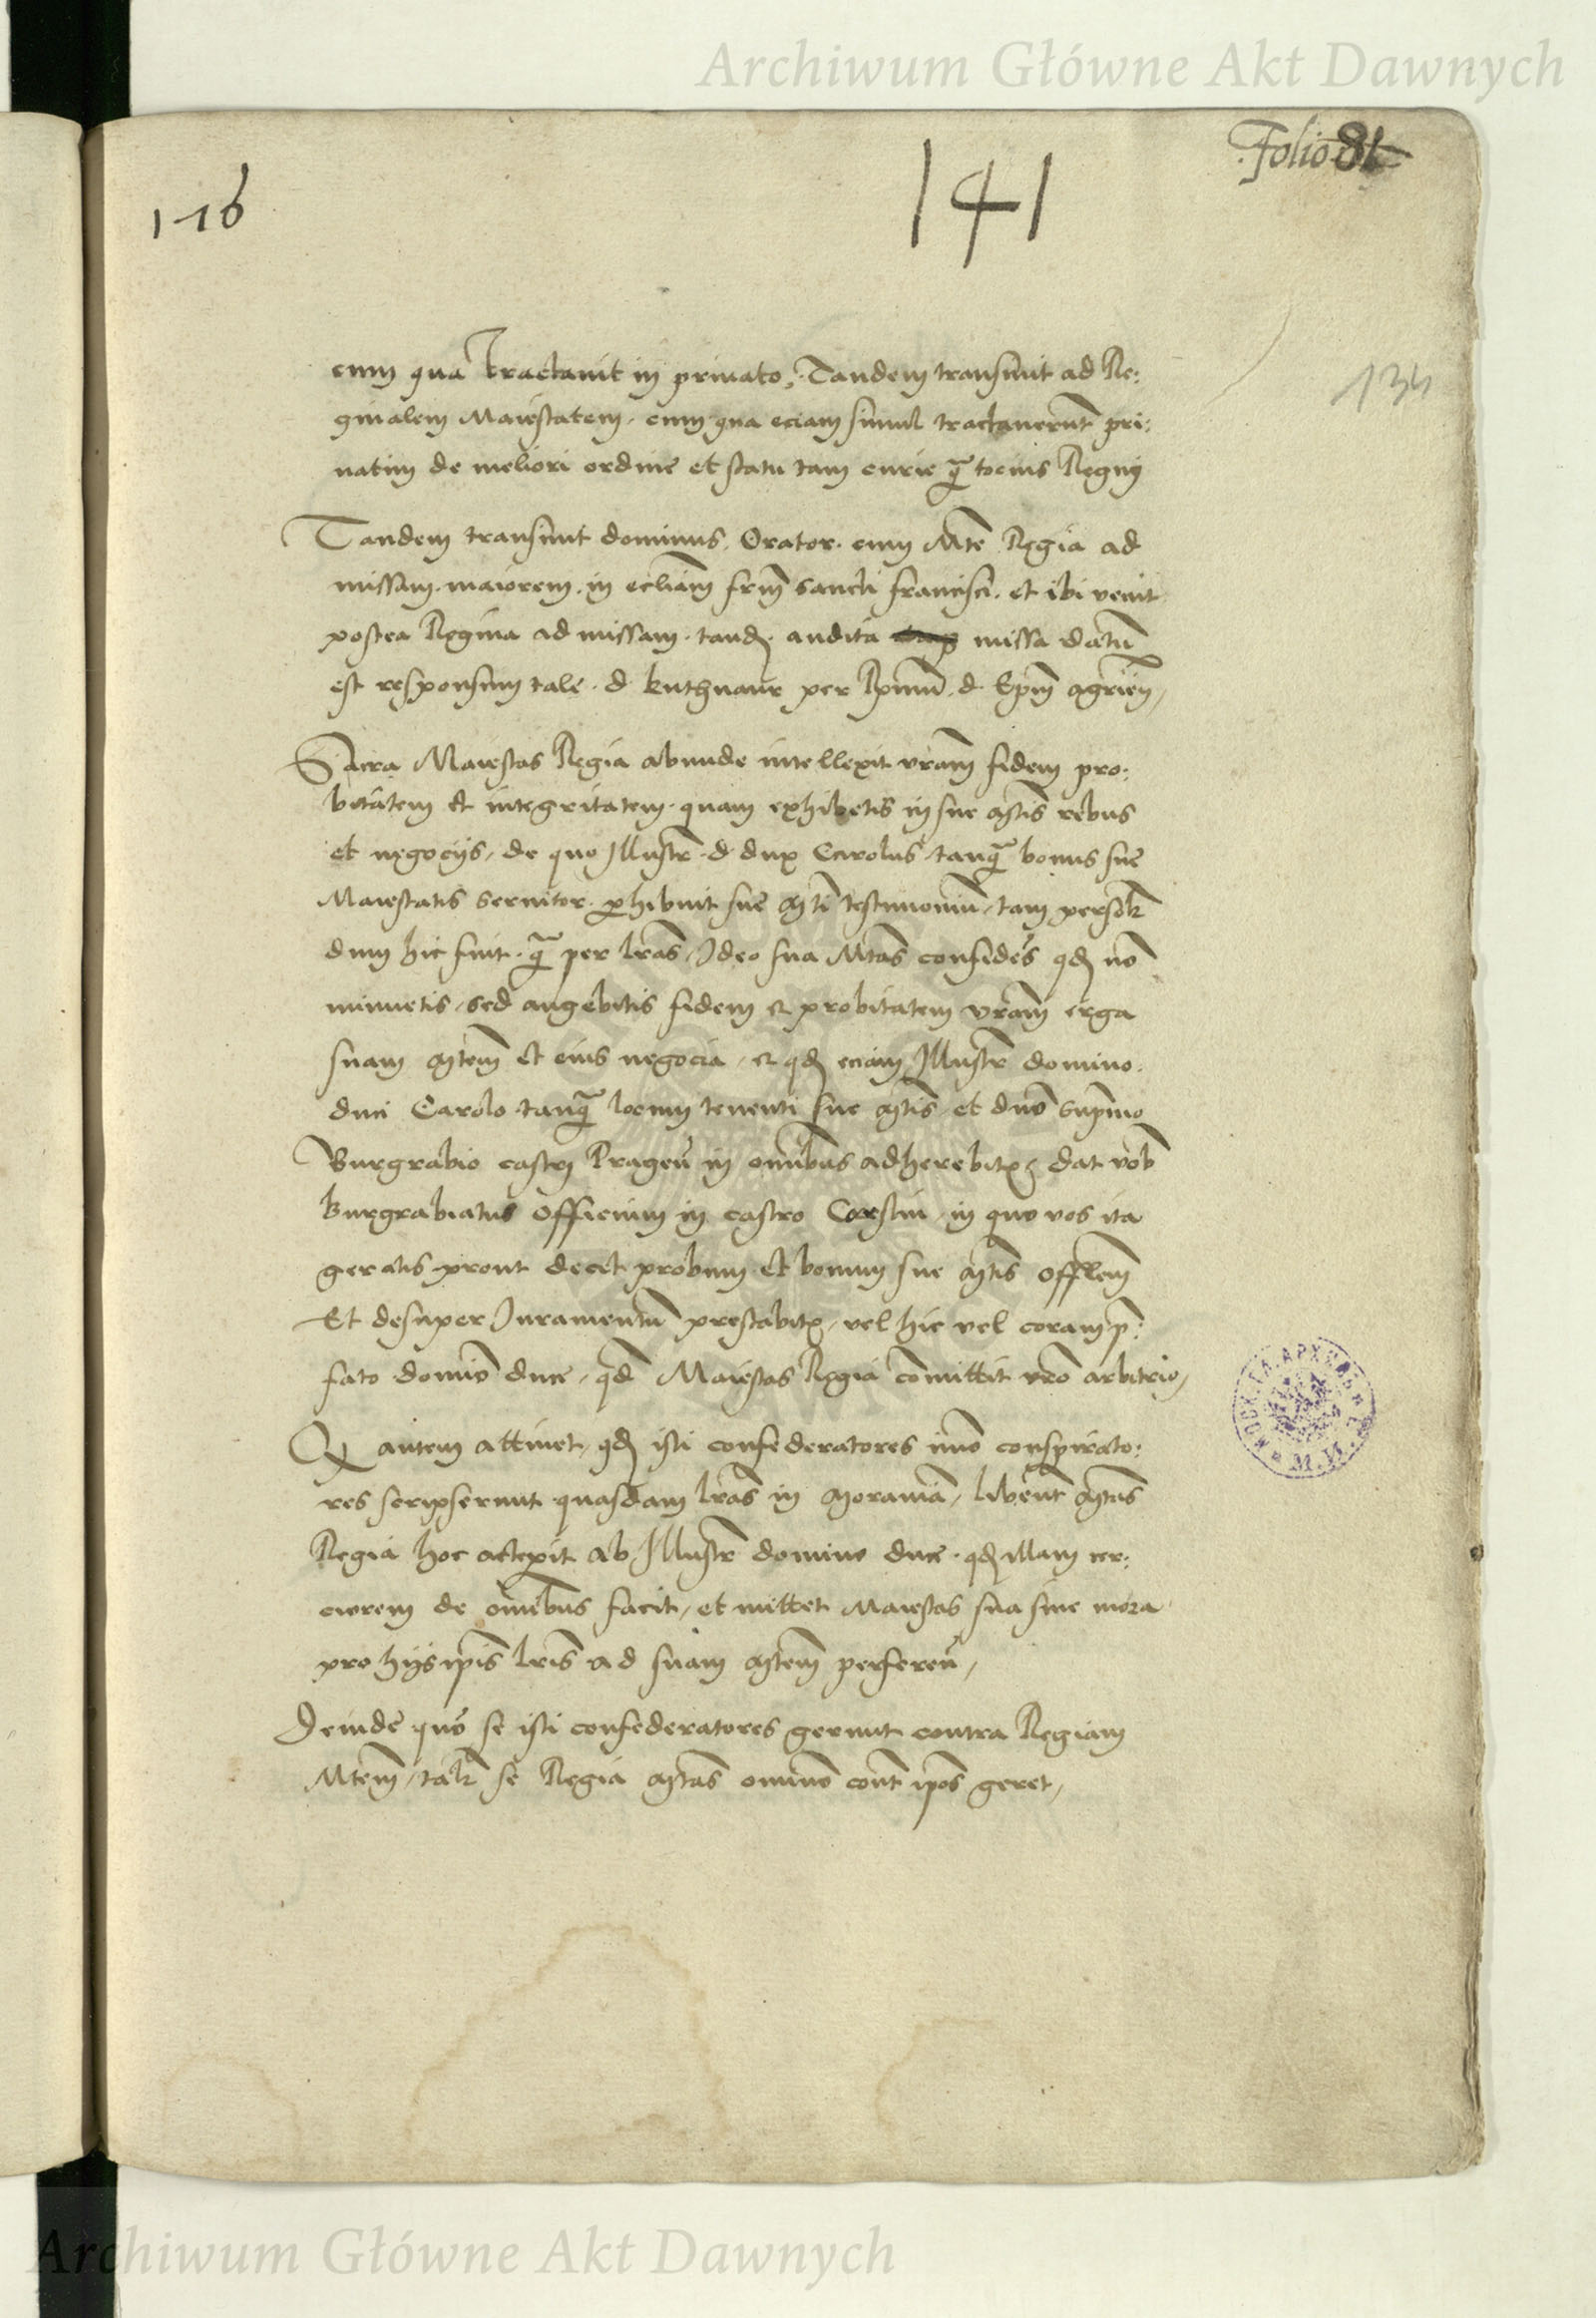 Archiwum Główne Akt Dawnych
Folio 81
116
141
134
cum qua tractauit in priuato, Tandem transiuit ad Re:
ginalem Maiestatem, cum qua eciam simul tractauerūt pri:
uatim de meliori ordine et statu tam curie q̄ tocius Regnj
Tandem transiuit dominus Orator cum Mte Regia ad
missam maiorem in eccliam frm sancti francisci et ibi venit
postea Regina ad missam tand. audita missa datū
est responsum tale d kuthnaur per Rpmum d Epm agrien,
Sacra Maiestas Regia abunde intellexit vram fidem pro:
bitatem et integritatem quam exhibetis in sue Mtis rebus
et negocijs, de quo Illustr d dux Carolus tanq̄ bonus sue
Maiestatis seruitor perhibuit sue Mti testimoniū, tam persolr
dum hic fuit q̄ per lras, Ideo sua Mtas confidēs qd nō
minuetis, sed augebitis fidem et probitatem vram erga
suam Mtem et eius negocia, et qd eciam Illustr domino
duci Carolo tanq̄ locum tenenti sue Mtis et dno supmo
Burgrabio castri Pragen in omibus adherebit dat vob
burgrabiatus officium in castro Corstin, in quo vos ita
geratis prout decet probum et bonum sue Mtis offlem
Et desuper Juramentū prestabit, vel hic vel coram p:
fato domīo duce, qd Maiestas Regia cōmittit vro arbitrio,
Qd autem attinet, qd isti confederatores imo conspirato:
res scripserunt quasdam lras in Morauiā, libent Mtas
Regia hoc accepit ab Illustr domino duce qd illam cer:
ciorem de omibus facit, et mittet Maiestas sua sine mora
pro hijs ipis lris ad suam Mtem perferen,
Deinde quo se isti confederatores gerunt contra Regiam
Mtem, talr se Regia Mtas omnino cont ipos geret,
Archiwum Główne Akt Dawnych